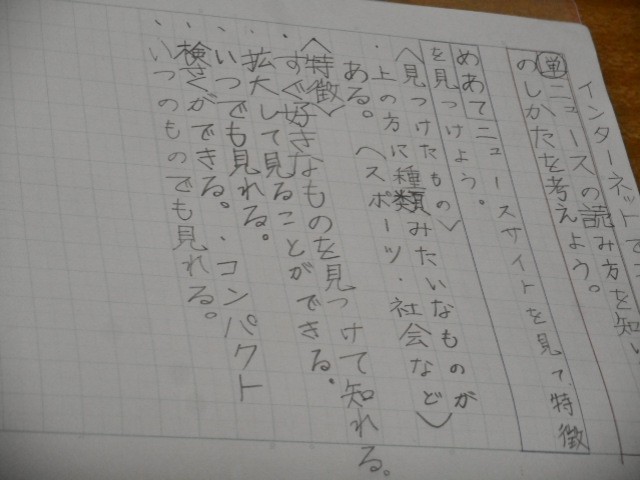 インターネットで
単 ニュースの読み方を知り
のしかたを考えよう。
めあて ニュースサイトを見て特徴
を見つけよう。
〈見つけたもの〉
・上の方に種類みたいなものが
ある。(スポーツ・社会など)
〈特徴〉
・すぐ好きなものを見つけて知れる。
・拡大して見ることができる。
・いつでも見れる。・コンパクト
・検さくができる。
・いつのものでも見れる。